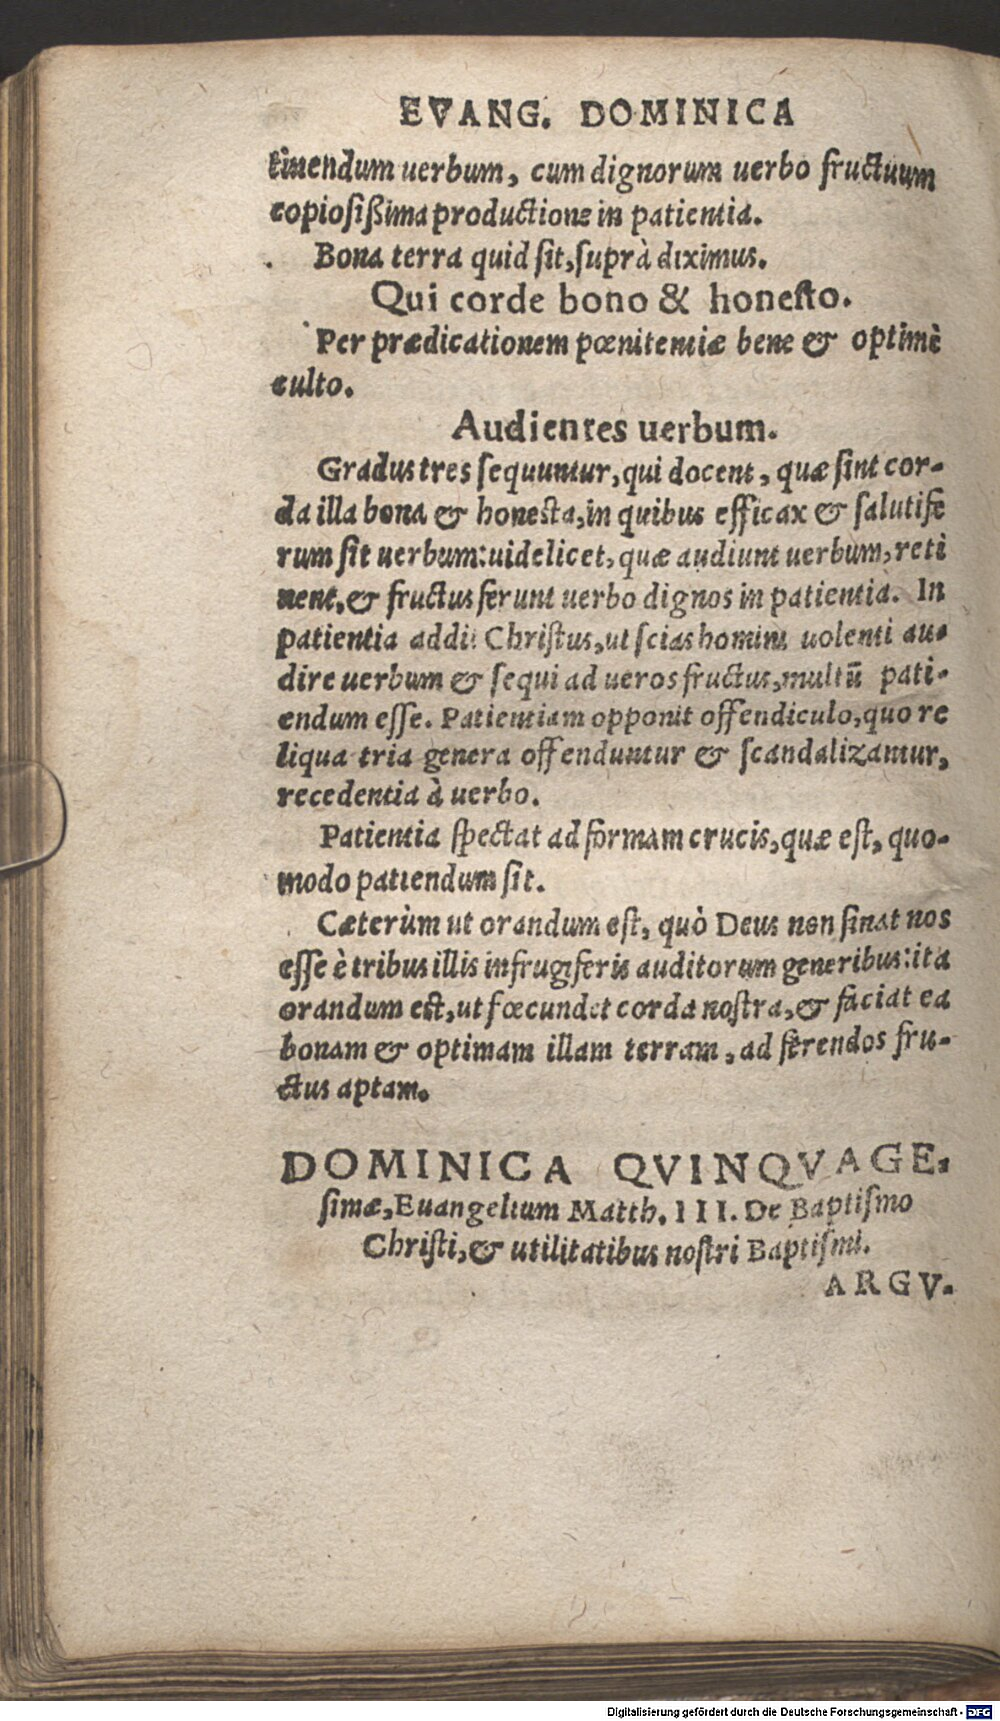 EVANG. DOMINICA
tinendum uerbum, cum dignorum uerbo fructuum
copiosißima productione in patientia.
Bona terra quid sit, suprà diximus.
Qui corde bono & honesto.
Per prædicationem pœnitentiæ bene & optimè
culto.
Audientes uerbum.
Gradus tres sequuntur, qui docent, quæ sint cor-
da illa bona & honesta, in quibus efficax & salutife
rum sit uerbum: uidelicet, quæ audiunt uerbum, reti
nent, & fructus ferunt uerbo dignos in patientia. In
patientia addit Christus, ut scias homini uolenti au-
dire uerbum & sequi ad ueros fructus, multū pati-
endum esse. Patientiam opponit offendiculo, quo re
liqua tria genera offenduntur & scandalizantur,
recedentia à uerbo.
Patientia spectat ad formam crucis, quæ est, quo-
modo patiendum sit.
Cæterùm ut orandum est, quò Deus non sinat nos
esse è tribus illis infrugiferis auditorum generibus: ita
orandum est, ut fœcundet corda nostra, & faciat ea
bonam & optimam illam terram, ad ferendos fru-
ctus aptam.
DOMINICA QVINQVAGE-
simæ, Euangelium Matth. III. De Baptismo
Christi, & utilitatibus nostri Baptismi.
ARGV-
Digitalisierung gefördert durch die Deutsche Forschungsgemeinschaft - DFG